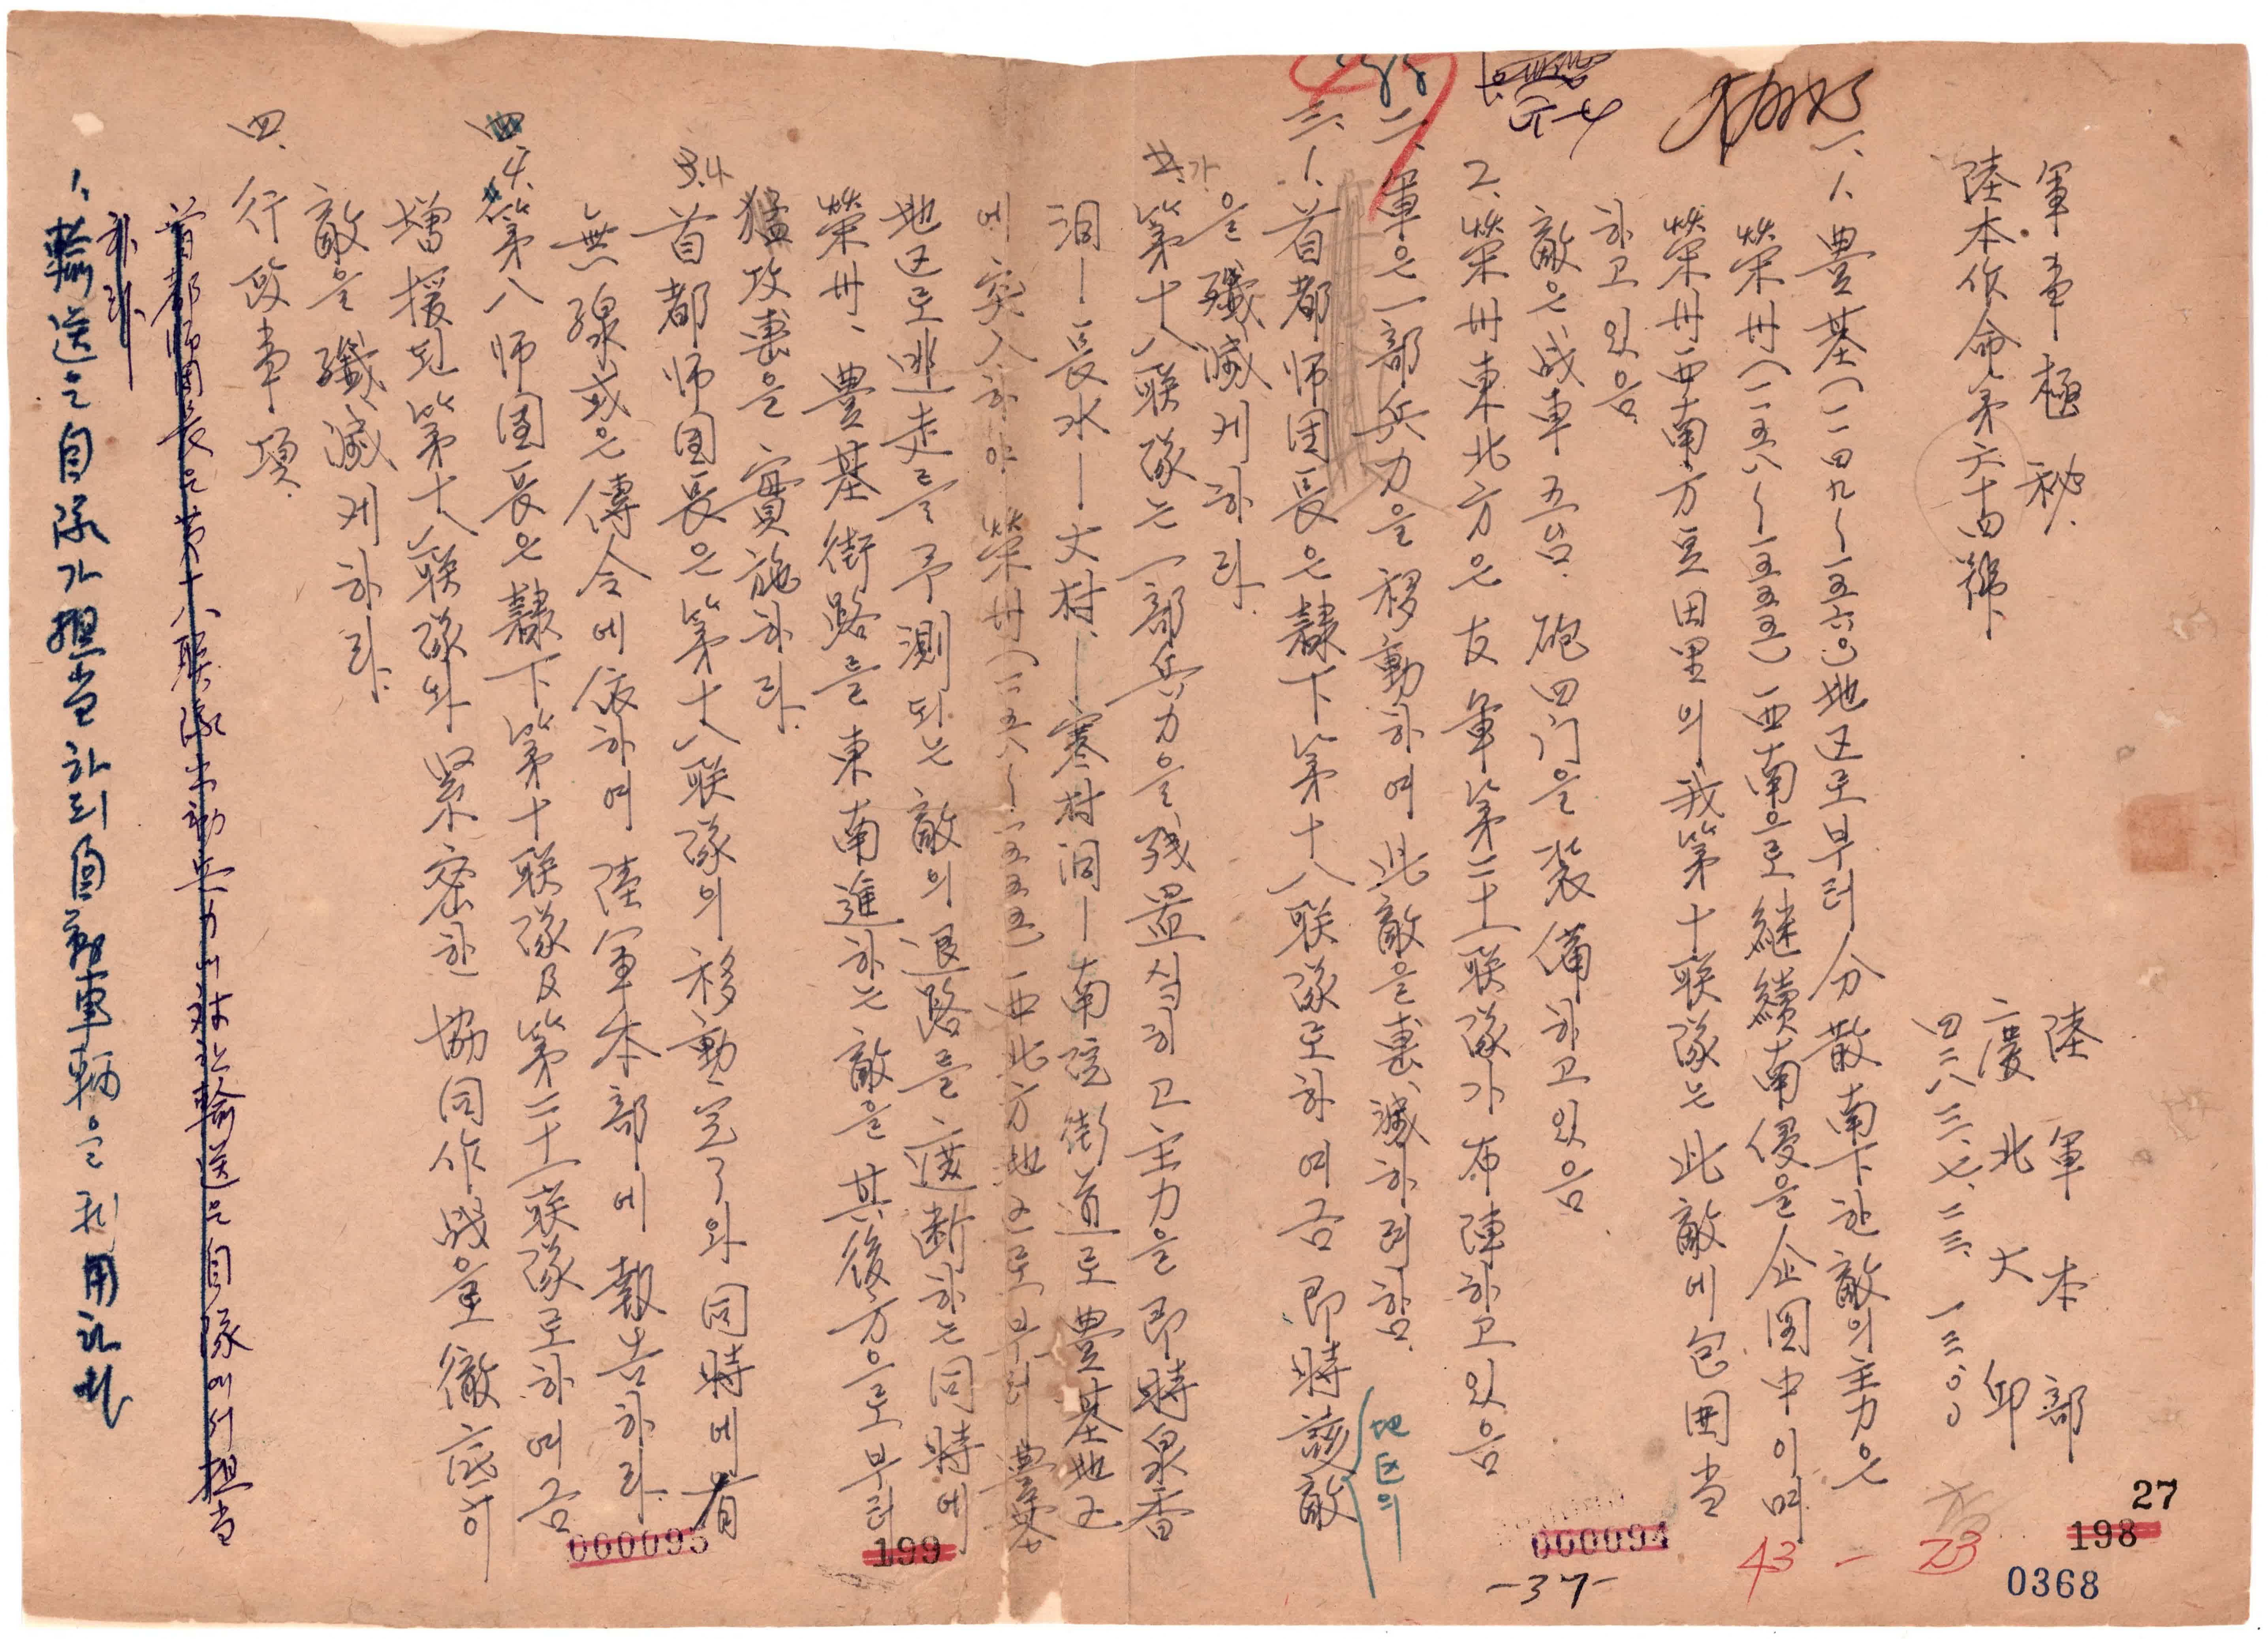 軍事極秘.
陸軍本部
陸本作命第六十四號
慶北大邱
四二八三.七.二三. 一三:〇〇
一、1. 豊基(一一四九~一五六〇)地区로부터 分散南下한 敵의 主力은
榮州(一一五八~一五五五) 西南으로 継續南侵을 企圖中이며
榮州西南方 豆田里의 我第十联隊는 此敵에 包囲当
하고 있음
敵은 战車 五台. 砲四门을 装備하고 있음.
2. 榮州東北方은 友軍第二十一联隊가 布陣하고 있음
二、軍은 一部兵力을 移動하여 此敵을 擊滅하려함.
地区의
三、1. 首都师団長은 隷下第十八联隊로하여금 即時 該敵
을 殲滅케하라.
2. 가. 第十八联隊는 一部兵力을 残置시키고 主力을 即時 泉香
洞ー長水ー大村ー寒村洞ー南院街道로 豊基地区
에 突入하야 榮州(一一五八~一五五五) 西北方地区로부터 豊基
地区로 逃走를 予測되는 敵의 退路를 遮断하는 同時에
榮州、豊基街路를 東南進하는 敵을 其後方으로부터
猛攻擊을 實施하라.
3. 4. 首都师団長은 第十八联隊의 移動完了와 同時에 有
無線或은 傳令에 依하여 陸軍本部에 報告하라.
四 4. 第八师団長은 隷下第十联隊及第二十一联隊로하여금
増援된 第十八联隊와 緊密한 協同作战을 徹底히
敵을 殲滅케하라.
四. 行政事項.
首都师團長은 第十八联隊 出動兵力의 輸送은 自隊에서 担当
하라
1、輸送은 自隊가 担当하되 自動車輌을 利用하라
27
198
0368
43 - 23
000094
-37-
199
000095